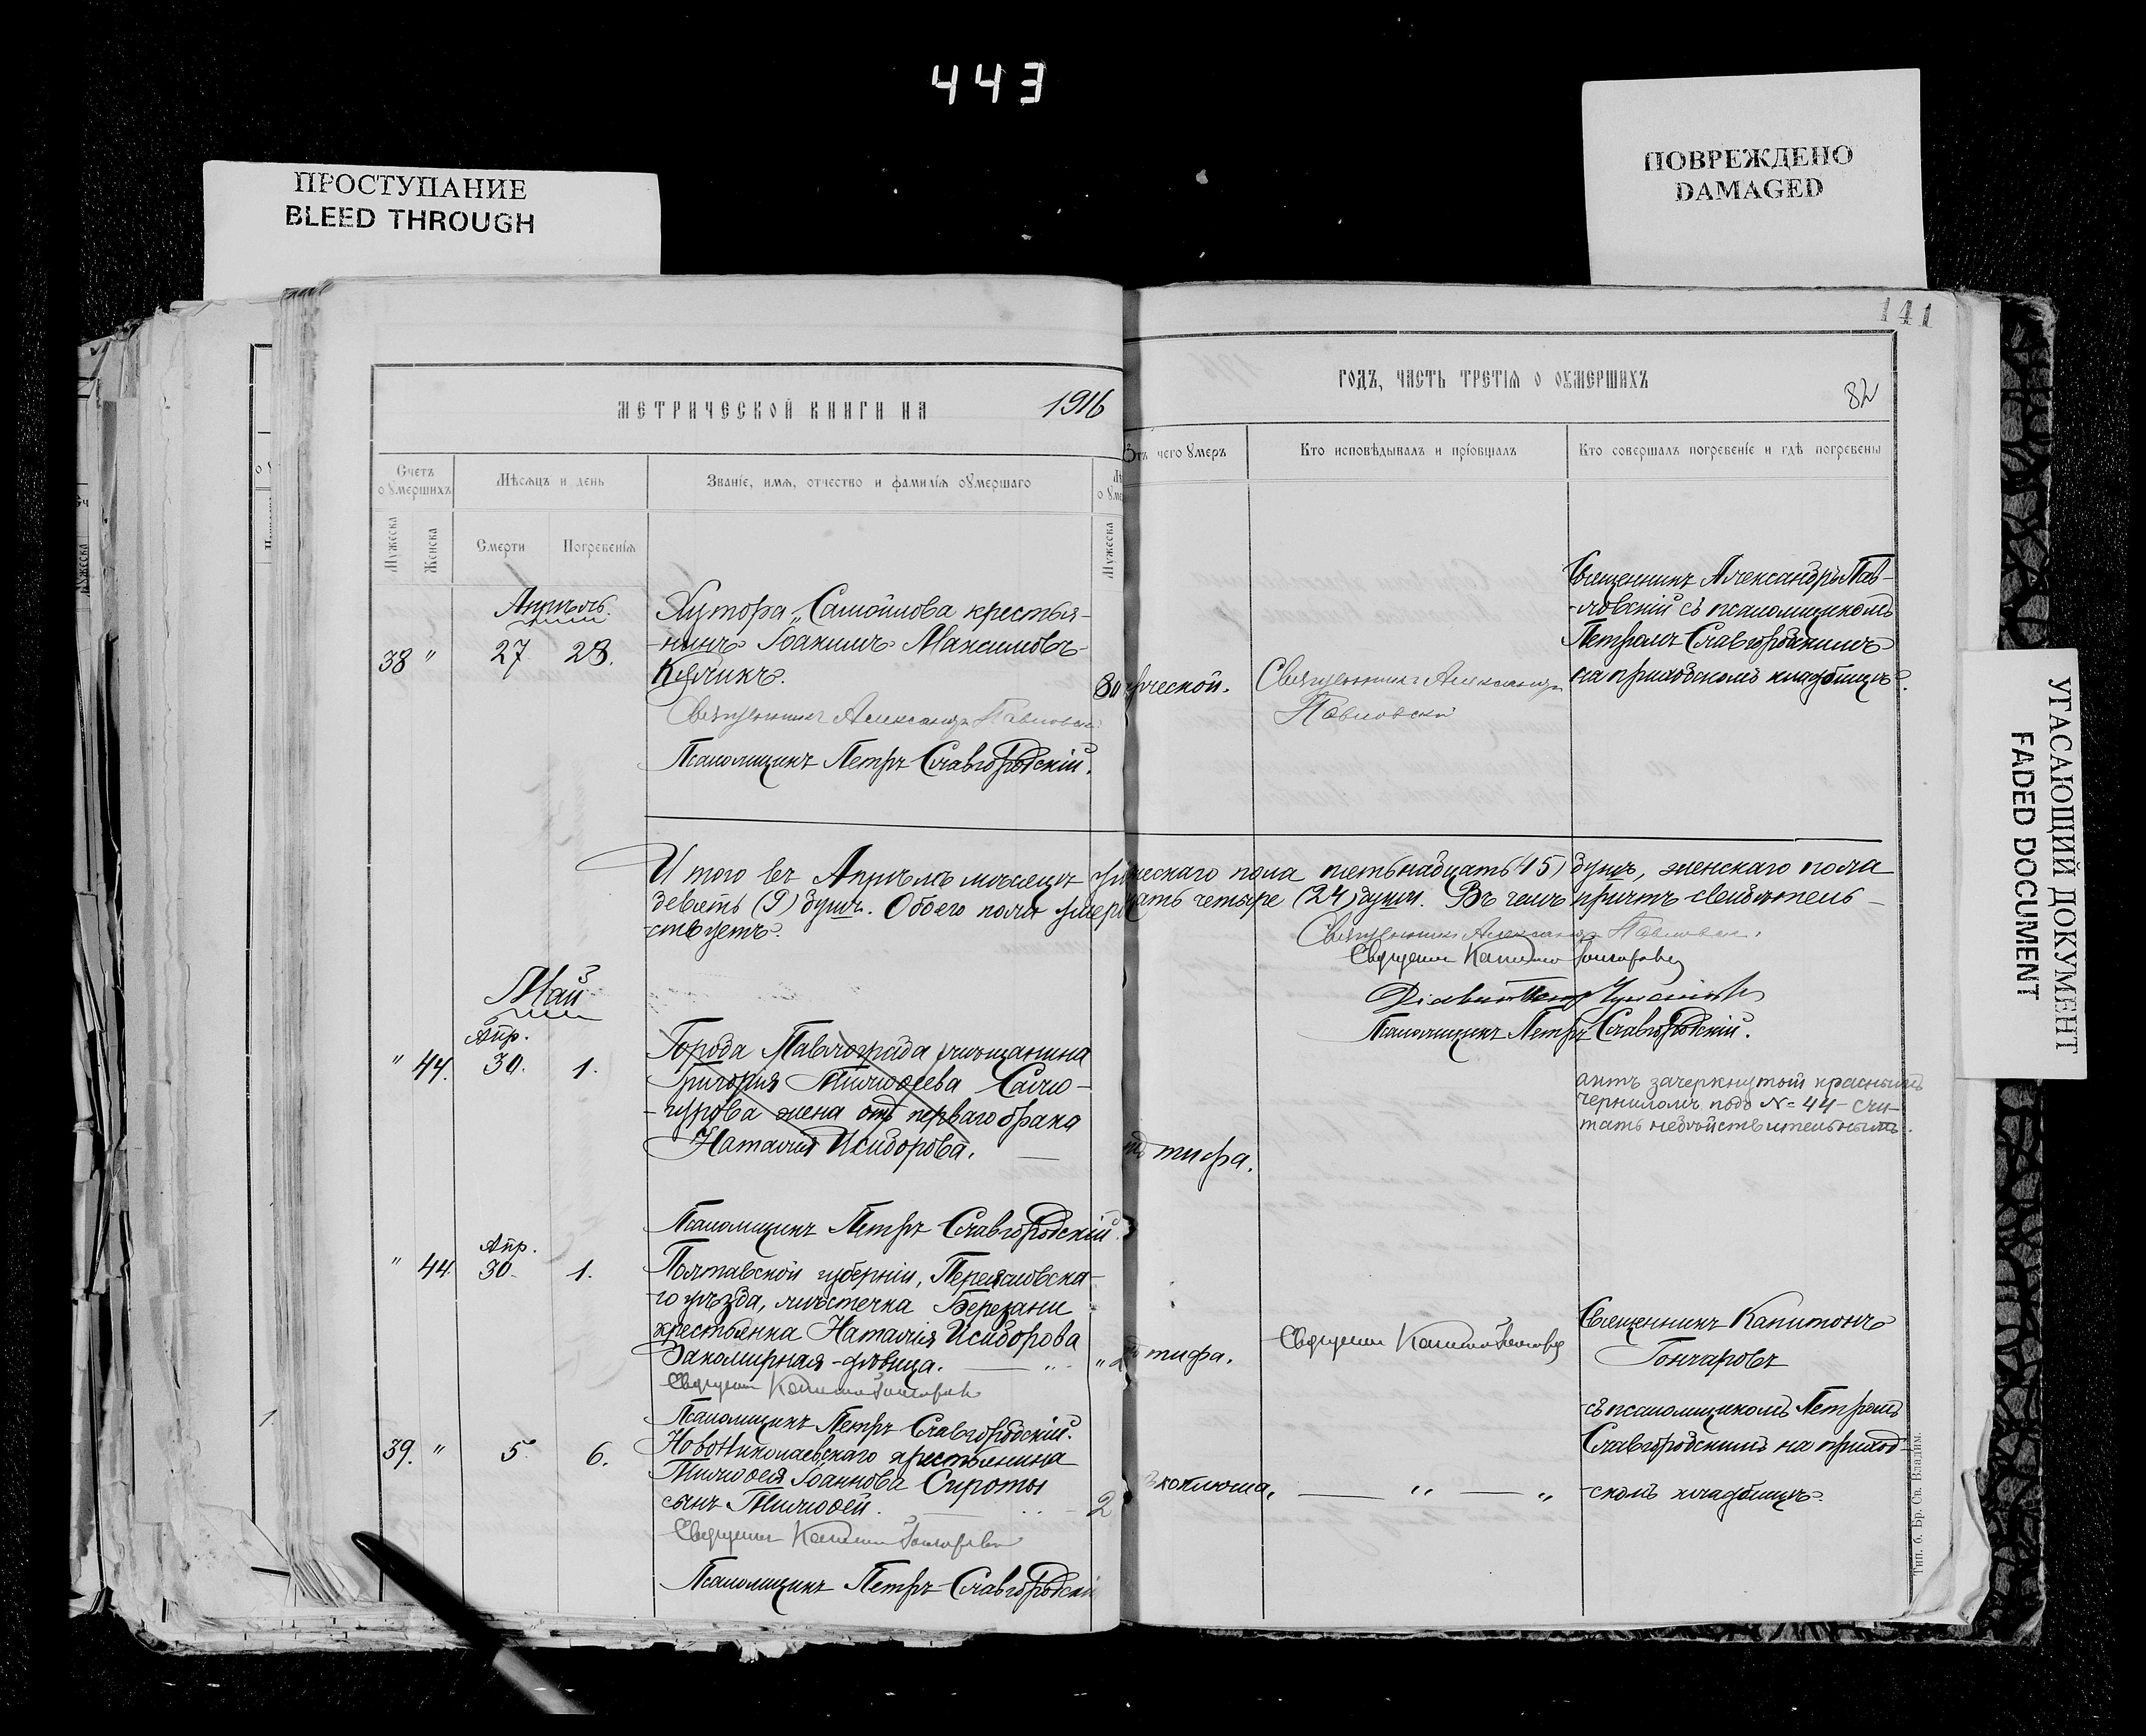 443
ПРОСТУПАНИЕ
BLEED THROUGH
ПОВРЕЖДЕНО
DAMAGED
УГАСАЮЩИЙ ДОКУМЕНТ
FADED DOCUMENT
141
МЕТРИЧЕСКОЙ КНИГИ НА 1916
ГОДЪ, ЧАСТЬ ТРЕТІЯ О ОУМЕРШИХЪ
82
Счетъ оумершихъ
Мѣсяцъ и день
Званіе, имя, отчество и фамилія оумершаго
чего умеръ
Кто исповѣдывалъ и пріобщалъ
Кто совершалъ погребеніе и гдѣ погребены
Мужеска
Женска
Смерти
Погребенія
Мужеска
Апрѣль
38 " 27 28.
Хутора „Самойлова крестья-
-нинъ Іоакимъ Максимовъ
Куликъ.
80
ческой.
Священникъ Александръ
Павловскій
Священникъ Александръ Пав-
-ловскій съ псаломщикомъ
Петромъ Славгородскимъ
на приходскомъ кладбищѣ.
Священникъ Александръ Павловскій
Псаломщикъ Петръ Славгородскій.
И того въ Апрѣлѣ мѣсяцѣ мужескаго пола пятьнадцать (15) душъ, женскаго пола
девять (9) душъ. Обоего пола умер ать четыре (24) души. Въ чемъ причтъ свидѣтель-
-ствуетъ.
Священникъ Александръ Павловскій.
Священникъ Капитонъ Гончаровъ
Діаконъ
Псаломщикъ Петръ Славгородскій.
Май
Апр.
" 44. 30. 1.
Города Павлограда мѣщанина
Григорія Тимофеева Само-
жена отъ перваго брака
Наталія Исидорова.
тифа.
актъ зачеркнутый краснымъ
черниломъ подъ № 44 - счи-
тать недѣйствительнымъ.
Псаломщикъ Петръ Славгородскій.
Апр.
" 44 30. 1.
Полтавской губерніи, Переясловска-
го уѣзда, мѣстечка Березани
крестьянка Наталія Исидорова
Закомирная-дѣвица.
тифа.
Священникъ Капитонъ Гончаровъ
Священникъ Капитонъ
Гончаровъ
съ псаломщикомъ Петромъ
Славгородскимъ на приход-
скомъ кладбищѣ.
Священникъ Капитонъ Гончаровъ
Псаломщикъ Петръ Славгородскій.
39. " 5. 6.
Новониколаевскаго крестьянина
Тимофея Іоаннова Сироты
сынъ Тимофей.
2
коклюша.
Священникъ Капитонъ Гончаровъ
Псаломщикъ Петръ Славгородскі
Тип. б. Бр. Св. Владим.